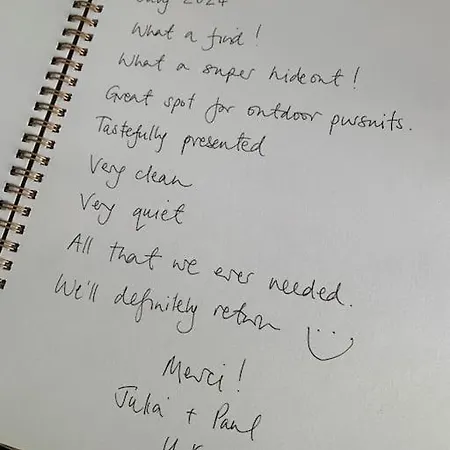 July 2024
What a find!
What a super hideout!
Great spot for outdoor pursuits.
Tastefully presented
Very clean
Very quiet
All that we ever needed.
We'll definitely return
Merci!
Julia + Paul